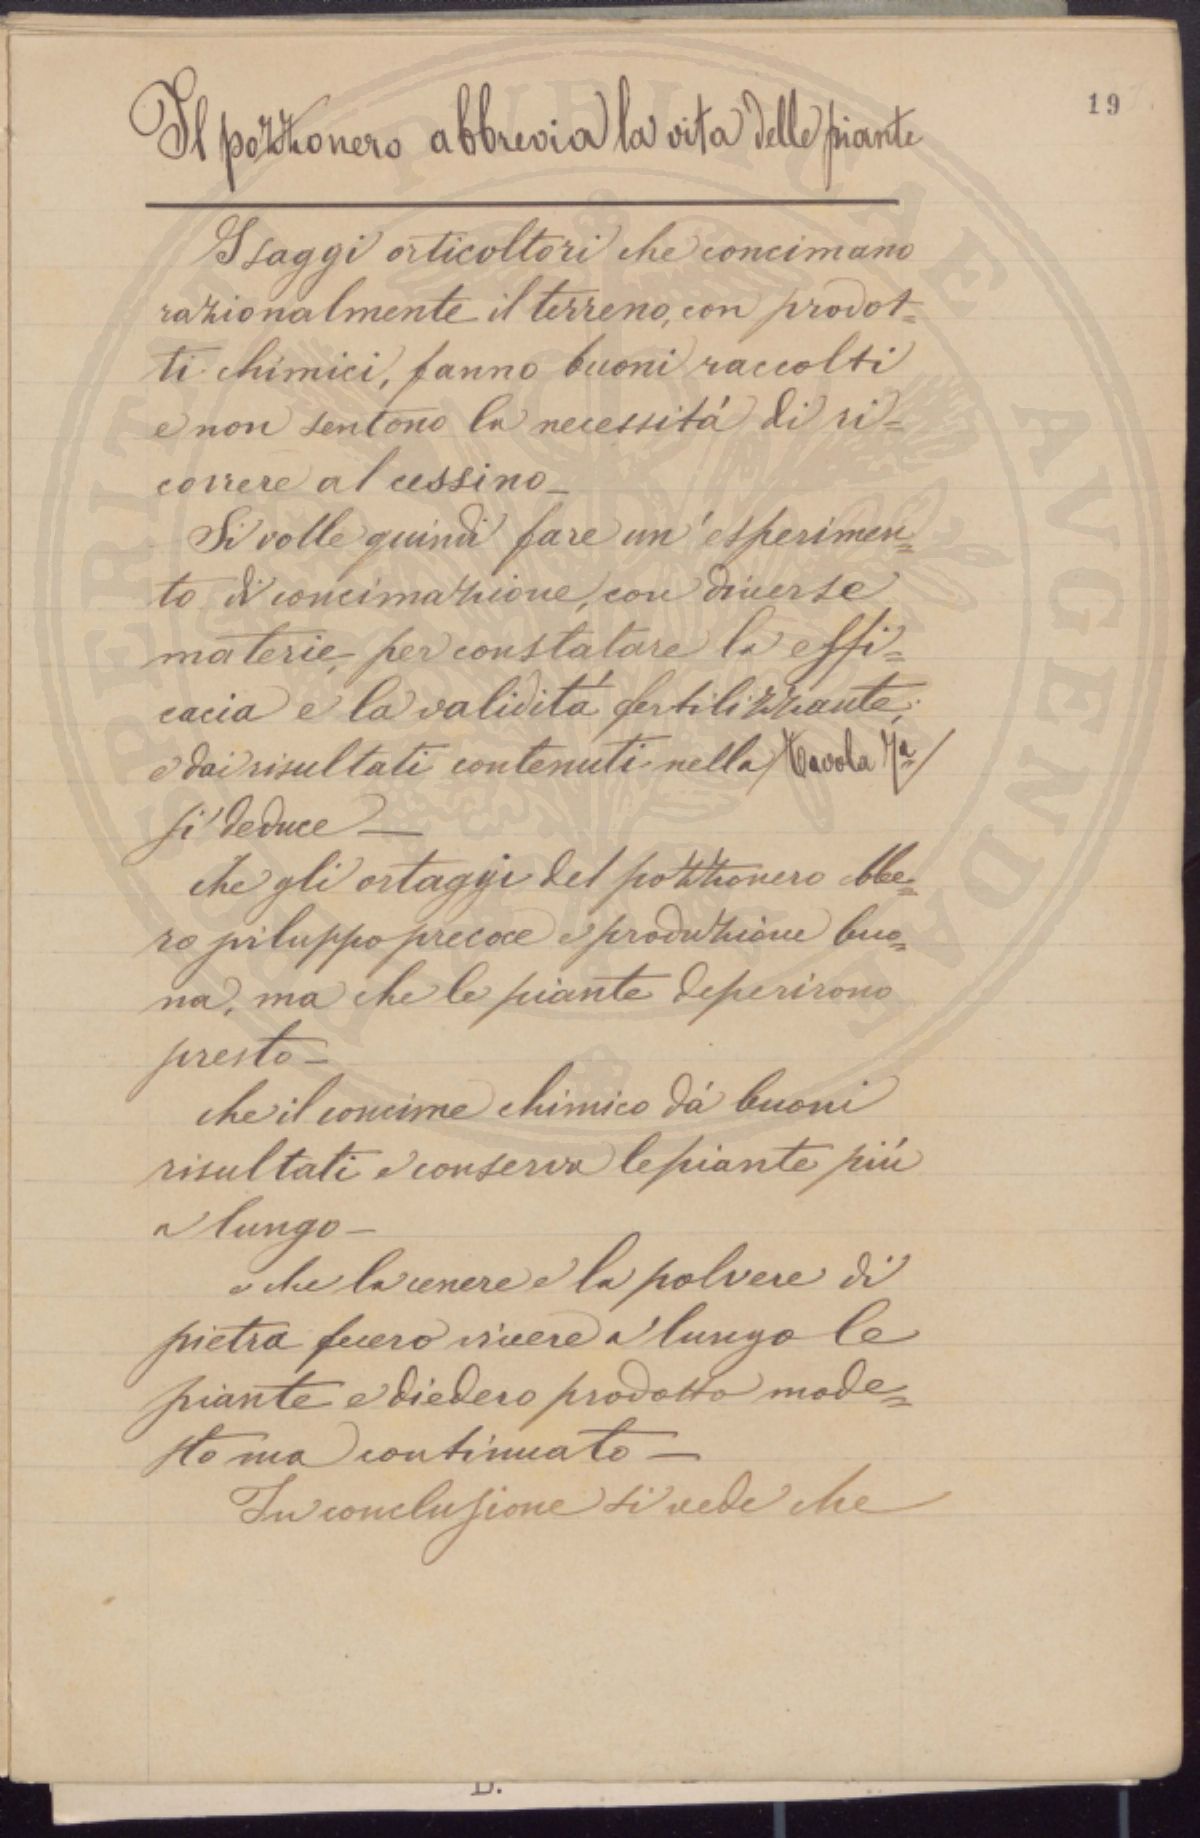 19
Il pozzonero abbrevia la vita delle piante
I saggi orticoltori che concimano
razionalmente il terreno, con prodot=
ti chimici, fanno buoni raccolti
e non sentono la necessitá di ri=
correre al cessino_
Si volle quindi fare un'esperimen=
to di concimazione, con diverse
materie, per constatare la effi=
cacia e la validitá fertilizzante;
e dai risultati contenuti nella Tavola 7ª
si deduce_
che gli ortaggi del pozzonero ebbe=
ro sviluppo precoce e produzione buo=
na, ma che le piante deperirono
presto_
che il concime chimico dá buoni
risultati e conserva le piante piú
a lungo_
e che la cenere e la polvere di
pietra fecero vivere a lungo le
piante e diedero prodotto mode=
sto ma continuato_
In conclusione si vede che
PERITA TVELICAE AVGENDAE